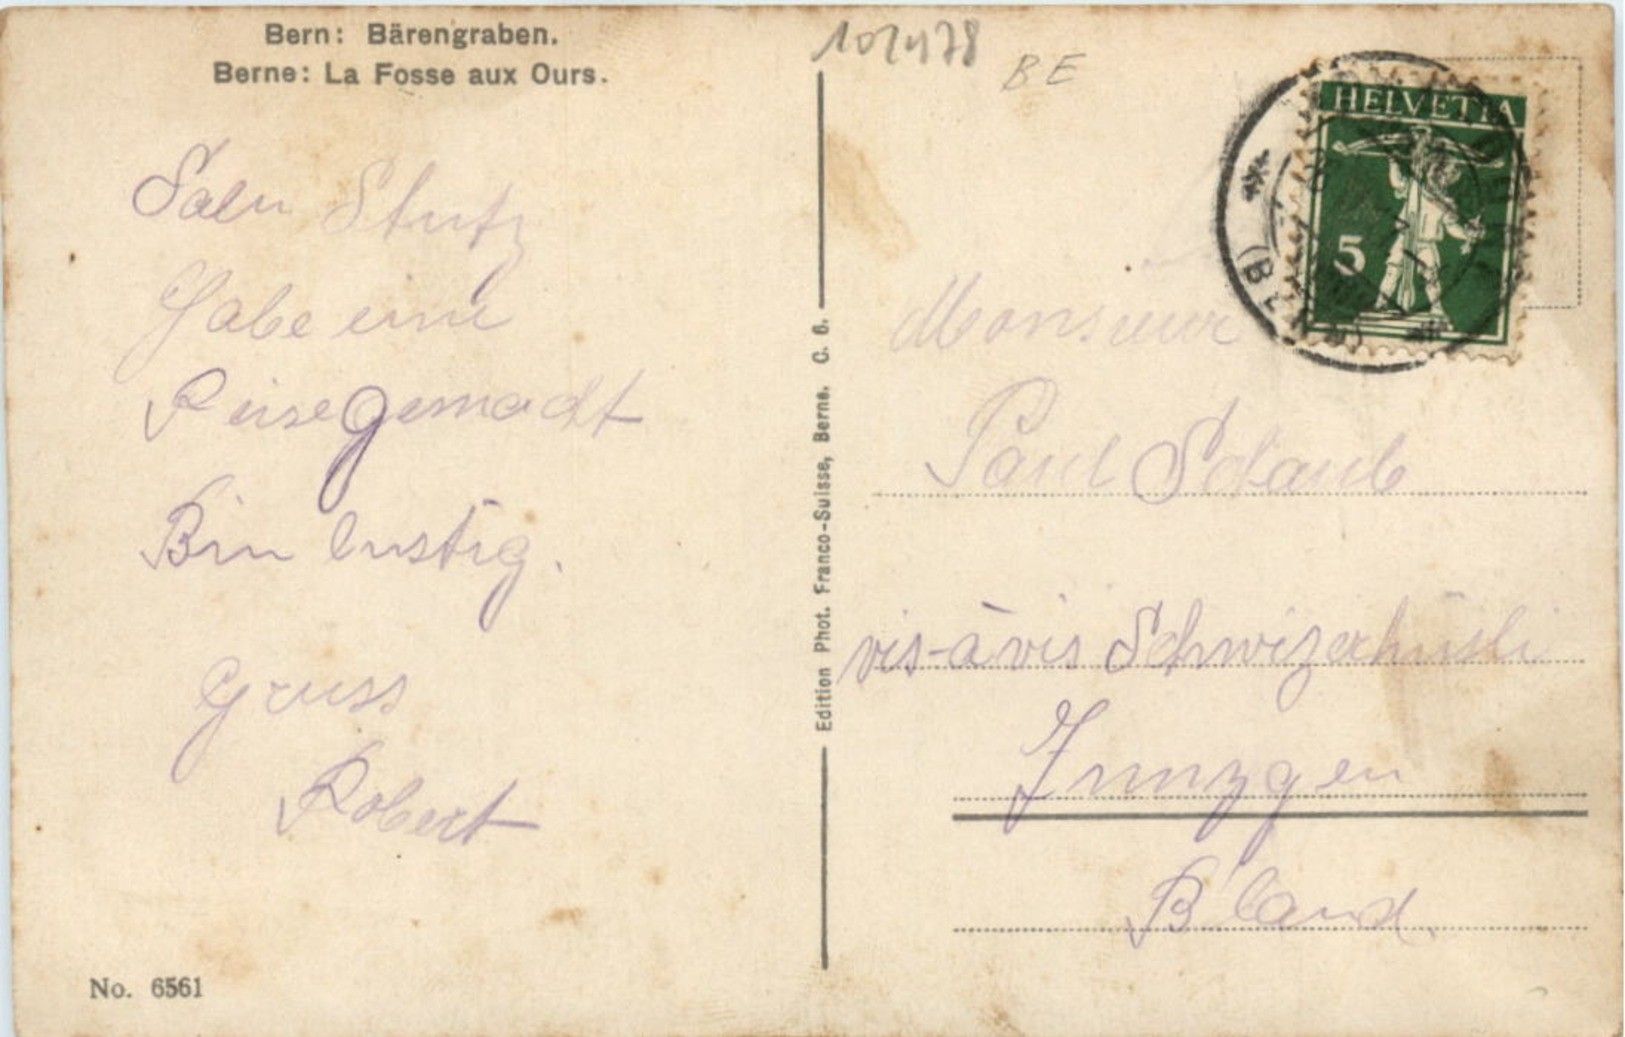 Bern: Bärengraben.
Berne: La Fosse aux Ours.
102478
BE
HELVETIA
5
Salu Stutz
Habe eine
Reise gemacht
Bin lustig.
Gruss
Robert
No. 6561
Edition Phot. Franco-Suisse, Berne. C. 6.
Monsieur
Paul Schaub
vis-à vis Schwizerhüsli
Zunzgen
B'land.